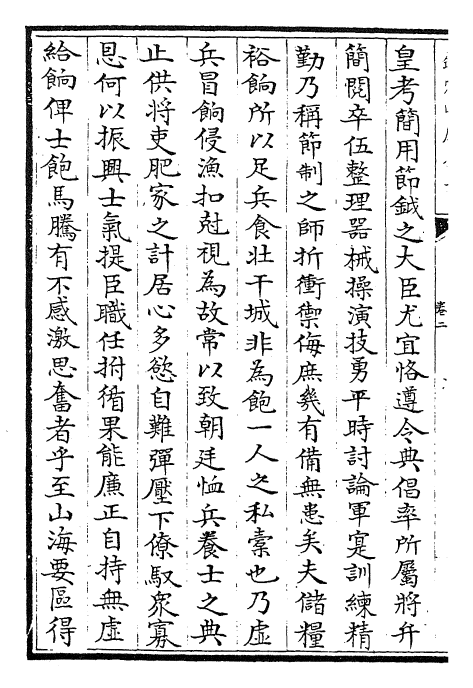 皇考簡用節鉞之大臣尤宜恪遵令典倡率所屬將弁
簡閱卒伍整理器械操演技勇平時討論軍寔訓練精
勤乃稱節制之師折衝禦侮庶幾有備無患矣夫儲糧
裕餉所以足兵食壯干城非為飽一人之私橐也乃虛
兵冒餉侵漁扣尅視為故常以致朝廷恤兵養士之典
止供將吏肥家之計居心多慾自難彈壓下僚馭衆寡
恩何以振興士氣提臣職任拊循果能廉正自持無虛
給餉俾士飽馬騰有不感激思奮者乎至山海要區得
卷二